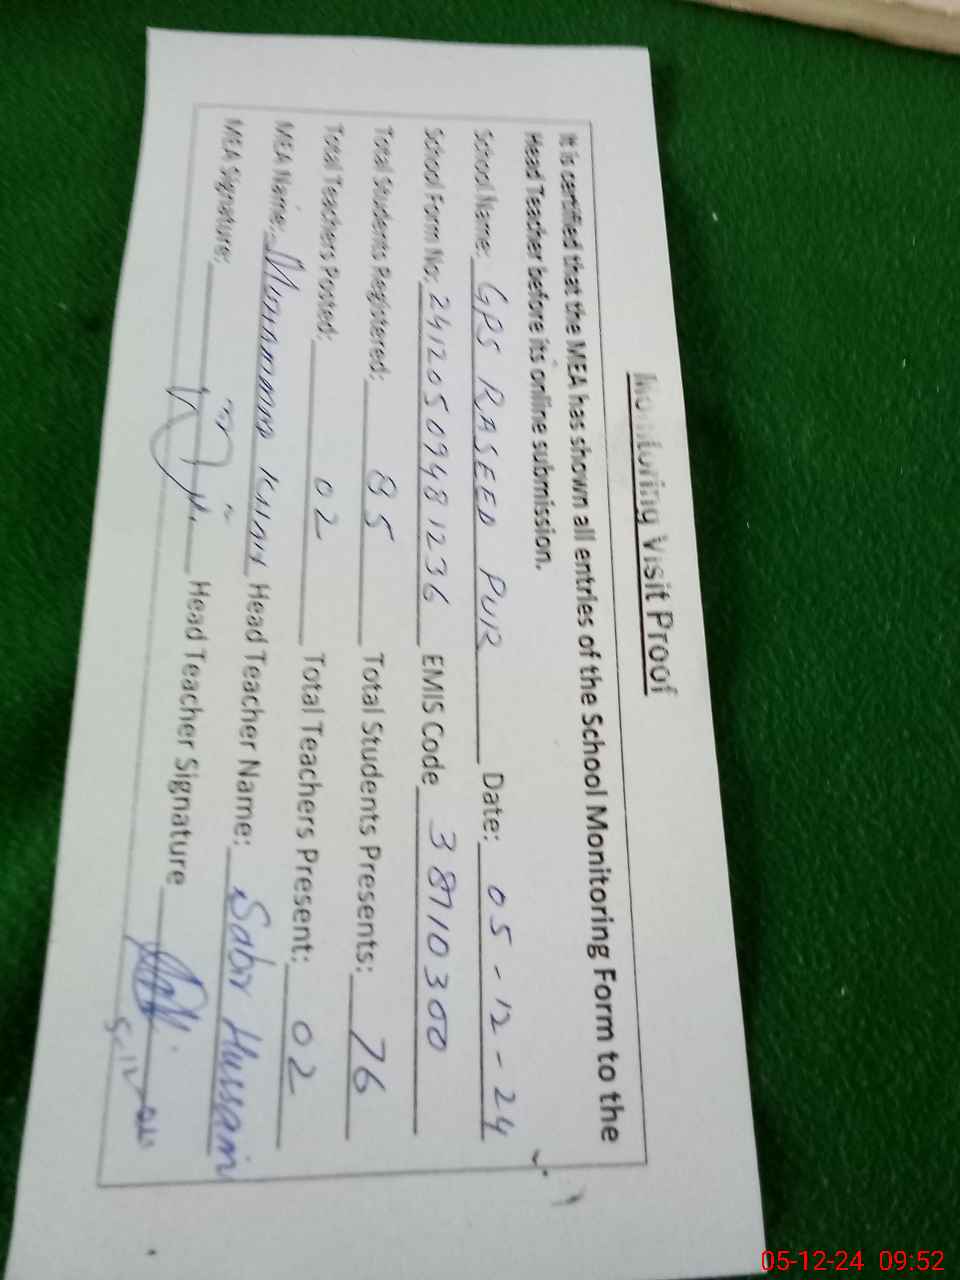 Monitoring Visit Proof
It is certified that the MEA has shown all entries of the School Monitoring Form to the
Head Teacher before its online submission.
School Name: GPS RASEED PUR Date: 05-12-24
School Form No: 24120509481236 EMIS Code 38710300
Total Students Registered: 85 Total Students Presents: 76
Total Teachers Posted: 02 Total Teachers Present: 02
MEA Name: Head Teacher Name: Sabir Hussain
MEA Signature: Head Teacher Signature
05-12-24 09:52